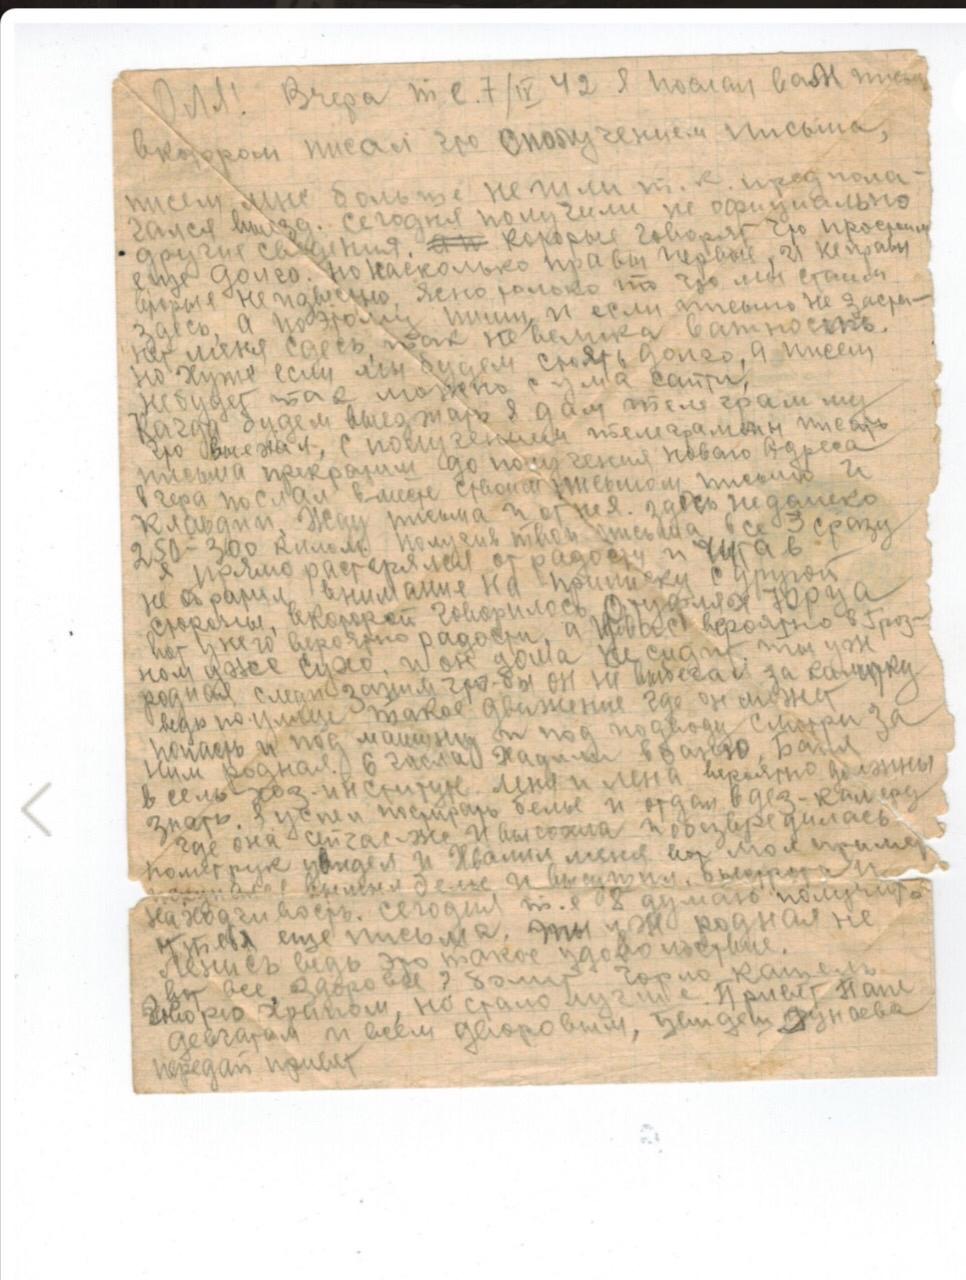 Оля! Вчера т.е. 7/IV 42 я послал вам
в котором писал что с получением письма,
писем мне больше не пиши т.к. предпола-
гался выезд. Сегодня получили не официально
другие сведения. которые говорят что простоим
еще долго. но насколько правы первые, и неправы
вторые неизвестно, ясно только то что мы стоим
здесь, а поэтому пиши, и если письмо не заста-
нет меня сдесь, так не велика важность.
но хуже если мы будем стоять долго, а писем
небудет так можно с ума сайти,
Когда будем выезжать я дам телеграмму
что выехал, с получением телеграммы писать
письма прекратит до получения нового адреса
вчера послал вместе с твоим письмом письмо и
Клавдии, Жду письма и от нея. здесь недалеко
250-300 килом. получив твои письма все 3 сразу
я прямо растерялся от радости и
не обратил внимание на приписку с другой
стороны, вкоторой говорилось о туфлях Юрца
вот у него вероятно радости, а у вас вероятно в Гроз-
ном уже сухо. и он дома не сидит ты уж
родная смотри за ним что-бы он не выбегал за калитку
ведь по улице такое движение где он может
попасть и под машину и под подводу смотри за
ним родная. 6 числа хадили в баню, баня
в сель-хоз-институте Леня и Лена вероятно должны
знать. я успел постирать белье и отдал в дез-камеру
где она сейчас-же и высохла и обезвредилась
помструк увидел и хвалил меня
вымыл белье и высушил.
находчивость. Сегодня т.е 8 думаю получить
от тебя еще письма, ты уж родная не
ленись ведь это такое удовольствие.
вы все здоровы? болит горло кашель
скоро храпом, но стало лучше. Привет Папе
девчатам и всем дворовым, увидеш Дунаева
передай привет